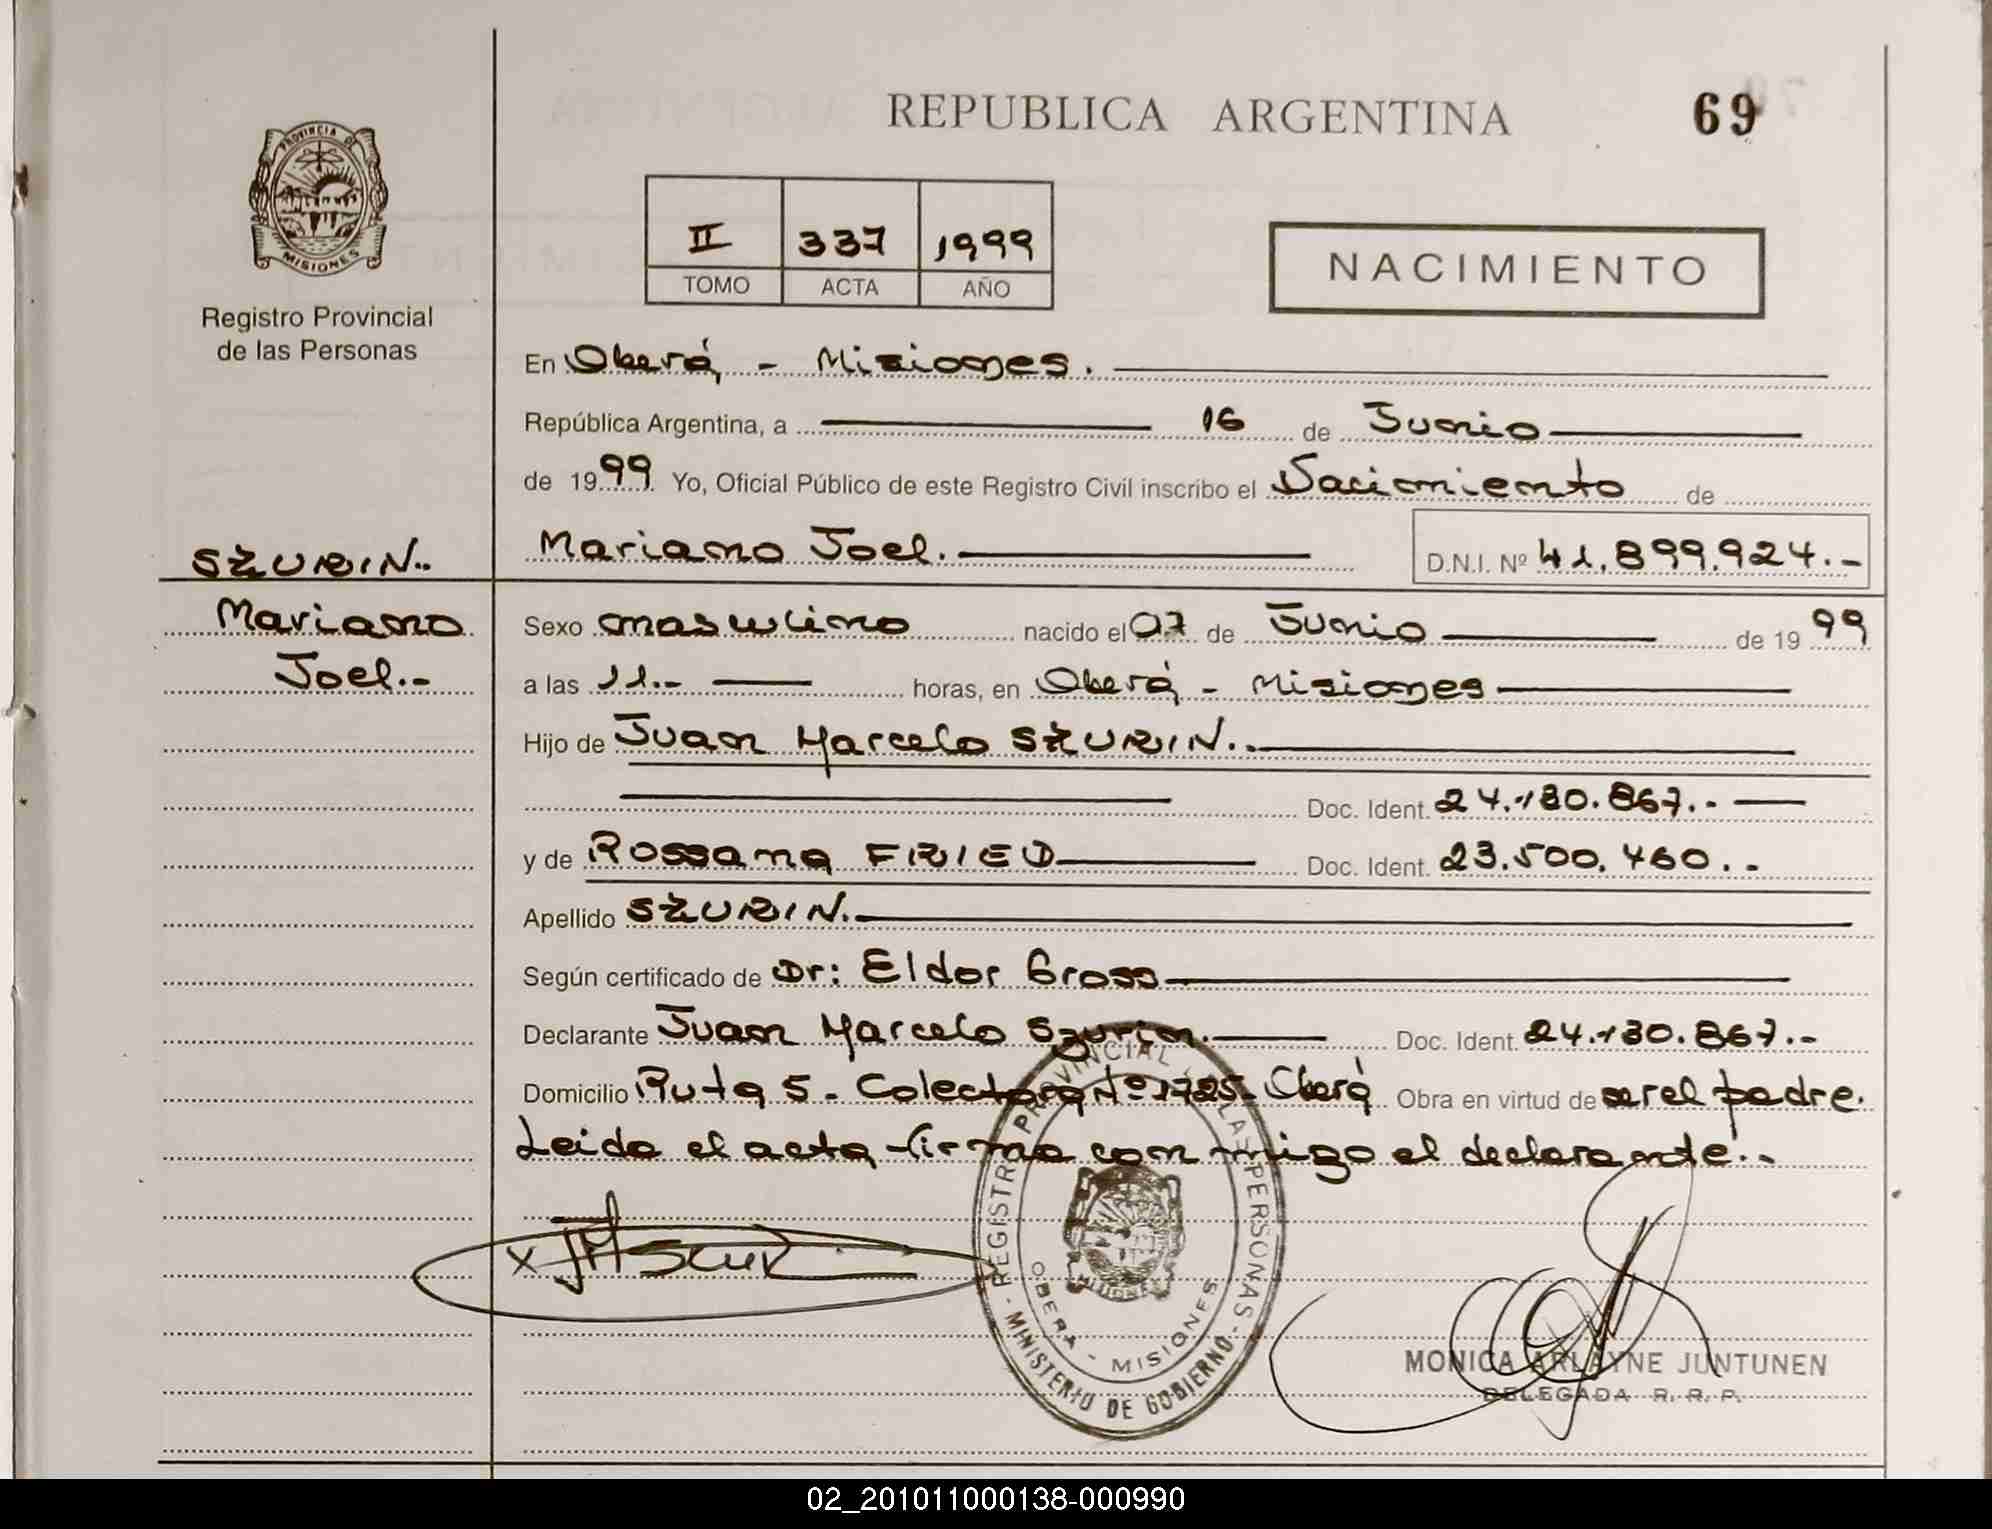 REPUBLICA ARGENTINA
69
PROVINCIA DE
MISIONES
Registro Provincial
de las Personas
II 337 1999
TOMO ACTA AÑO
NACIMIENTO
En Oberá - Misiones.
República Argentina, a 16 de Junio
de 1999 Yo, Oficial Público de este Registro Civil inscribo el Nacimiento de
Mariano Joel. D.N.I. Nº 41.899.924.-
SZURIN..
Mariano
Joel.-
Sexo masculino nacido el 07 de Junio de 1999
a las 11.- horas, en Oberá - Misiones
Hijo de Juan Marcelo SZURIN..
Doc. Ident. 24.180.867.-
y de Rossana FRIED Doc. Ident. 23.500.460..-
Apellido SZURIN.
Según certificado de Dr: Eldor Gross
Declarante Juan Marcelo Szurin. Doc. Ident. 24.180.867.-
Domicilio Ruta 5 - Colectora Nº 1725- Oberá Obra en virtud de ser el padre.
Leida el acta firma conmigo el declarante..-
REGISTRO PROVINCIAL DE LAS PERSONAS
OBERA - MISIONES
- MINISTERIO DE GOBIERNO -
MONICA ARLAYNE JUNTUNEN
DELEGADA R. R. P.
02_201011000138-000990